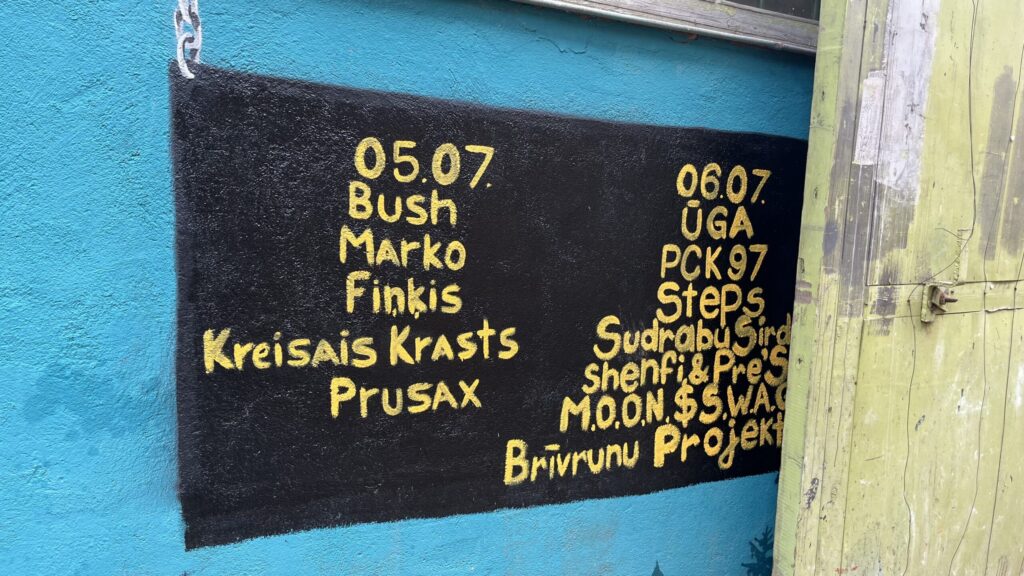 05.07.
Bush
Marko
Fiņķis
Kreisais Krasts
Prusax
06.07.
ŪGA
PCK97
Steps
Sudrabu Sird
shenfi & Pre'S
M.O.O.N. $S.W.A.G
Brīvrunu Projekt